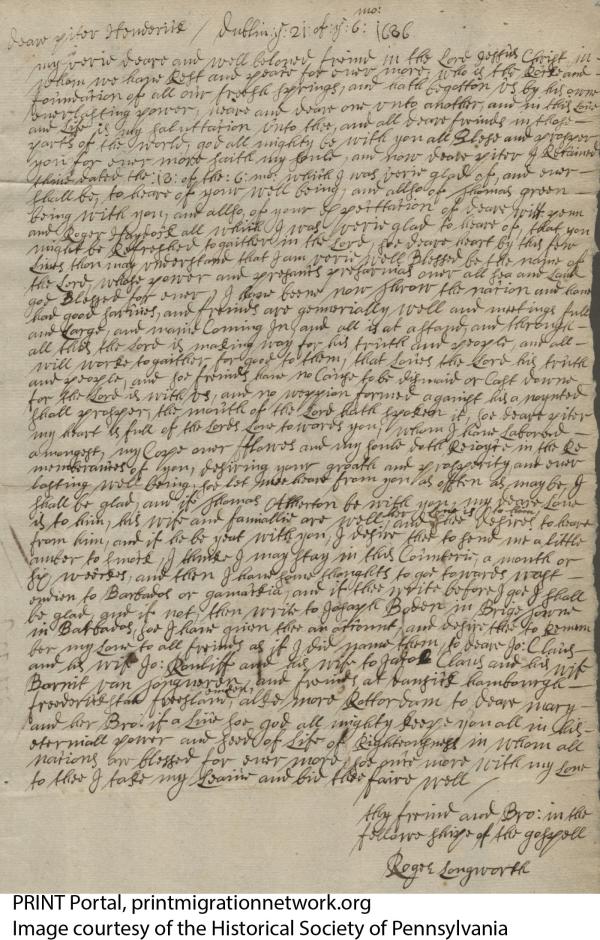 Deare piter Henderick / Dublin ye: 21: of ye: 6: mo: 1686
my verie deare and well beloved freind in the Lord Jessus Christ, in
whom we have Rest and peace for ever more, who is the Rock and
foundation of all our freesh springs, and hath begotton us by his owne
everlasting power, neare and deare one unto another, and in this Love
and Life is my salluttation unto thee, and all deare freinds in those
parts of the world, god all mighty be with you all Blese and prosper
you for ever more saith my soule, and now deare piter I Retained
thine dated the :13: of the :6: mo: which I was verie glad of, and ever
shall be, to heare of your well being, and allso of Thomas green
being with you, and allso of your expecttation of deare will: penn
and Roger Haydock all which I was verie glad to heare of, that you
might be Refreshed togaither in the Lord, soe deare heart by this few
Lines thou may understand that I am verie well Blessed be the name of
the Lord, whose power and presants preserves over all sea and Land
god Blessed for ever, I have beene now throw the nation and have
had good sarvices, and freinds are generially well and meetings full
and Large, and manie Coming In, and all is at a stand, and through
all this the Lord is making way for his truth and people, and all
will worke togaither for good to them, that Loves the Lord his truth
and people, and soe freinds have no Cause to be dismaid or Cast downe
for the Lord is with us, and no weppion formed against his a noynted
shall prosper, the mouth of the Lord hath spoken it, soe deare piter
my heart is full of the Lords Love towards you, whom I have Labored
amongest, my Cope over flowes and my soule doth Rejoyce in the Re
memberances of you, desiring your groath and prosperity and ever
lasting well being, soe let mee heare from you as often as may be, I
shall be glad, and if Thomas Atherton be with you, my deare Love
is to him, his wife and fammallie are well, her Love is to him, and shee desires to heare
from him, and if he be yeat with you, I desire thee to send me a little
amber to smock, I thinke I may stay in this Counterie, a month or
six weekes, and then I have some thoughts to goe towards west
endien to Barbados or gamackia, and if thee write before I goe I shall
be glad, and if not, then write to Joseph Boden in Brige towne
in Barbados, soe I have given thee an account, and desire thee to Remem
ber my Love to all freinds as if I did name them, to deare Jo: Claus
and his wife Jo: Roeliff and his wife to Jacob Claus and his wife
Barnit van Jongweren, and freinds at dansick hambourgh
freederickstat freesland, emden, allso more Rotterdam to deare mary
and her Bro: if a Live soe god all mighty keepe you all in his
eternall power and seed of Life of Righteousness in whom all
nations are blessed for ever more, soe once more with my Love
to thee I take my Leaive and bid thee faire well /
thy freind and Bro: in the
fellowe shipe of the gospell
Roger Longworth
PRINT Portal, printmigrationnetwork.org
Image courtesy of the Historical Society of Pennsylvania